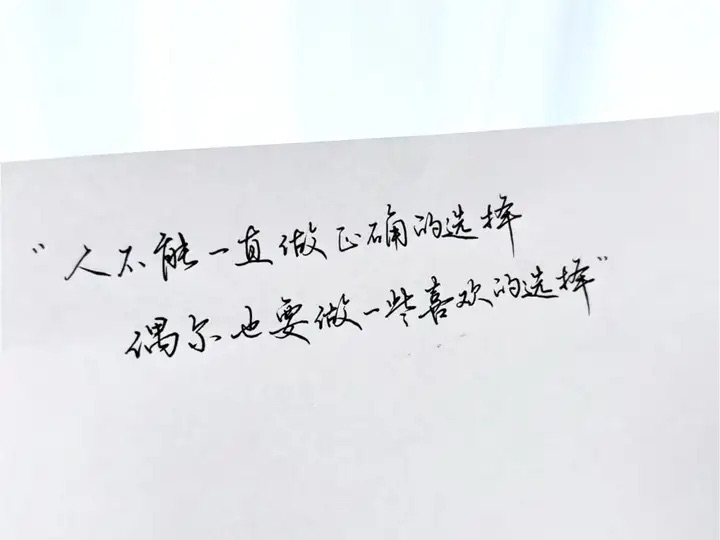 “人不能一直做正确的选择
偶尔也要做一些喜欢的选择”